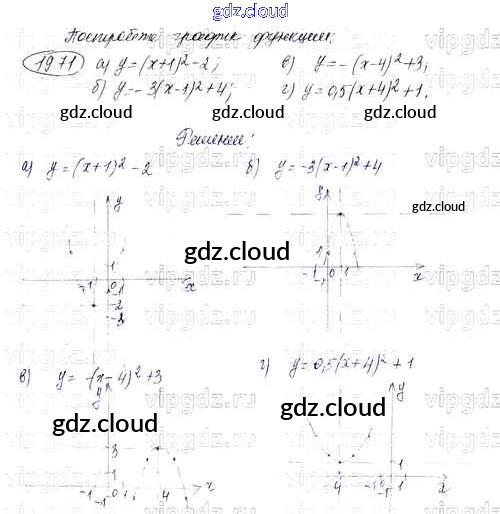 gdz.cloud
Постройте график функции:
19.71 а) y=(x+1)²-2; в) y=-(x-4)²+3;
б) y=-3(x-1)²+4; г) y=0,5(x+4)²+1.
gdz.cloud gdz.cloud
Решение:
а) y=(x+1)²-2 б) y=-3(x-1)²+4
y y
gdz.cloud gdz.cloud
1 1
-1 0 1 x -1 0 1 x
-2
-3
в) y=-(x-4)²+3 г) y=0,5(x+4)²+1
y y
gdz.cloud gdz.cloud
3
1 1
-1 0 1 4 x 4 -1 0 1 x
gdz.cloud gdz.cloud